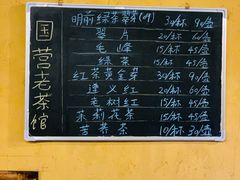 国营老茶馆
明前绿茶翠芽(川) 30/杯 90/壶
翠片 20/杯 66/壶
毛峰 15/杯 45/壶
绿茶 15/杯 45/壶
红茶黄金芽 30/杯 90/壶
遵义红 20/杯 60/壶
老树红 15/杯 45/壶
茉莉花茶 15/杯 45/壶
苦荞茶 10/杯 30/壶